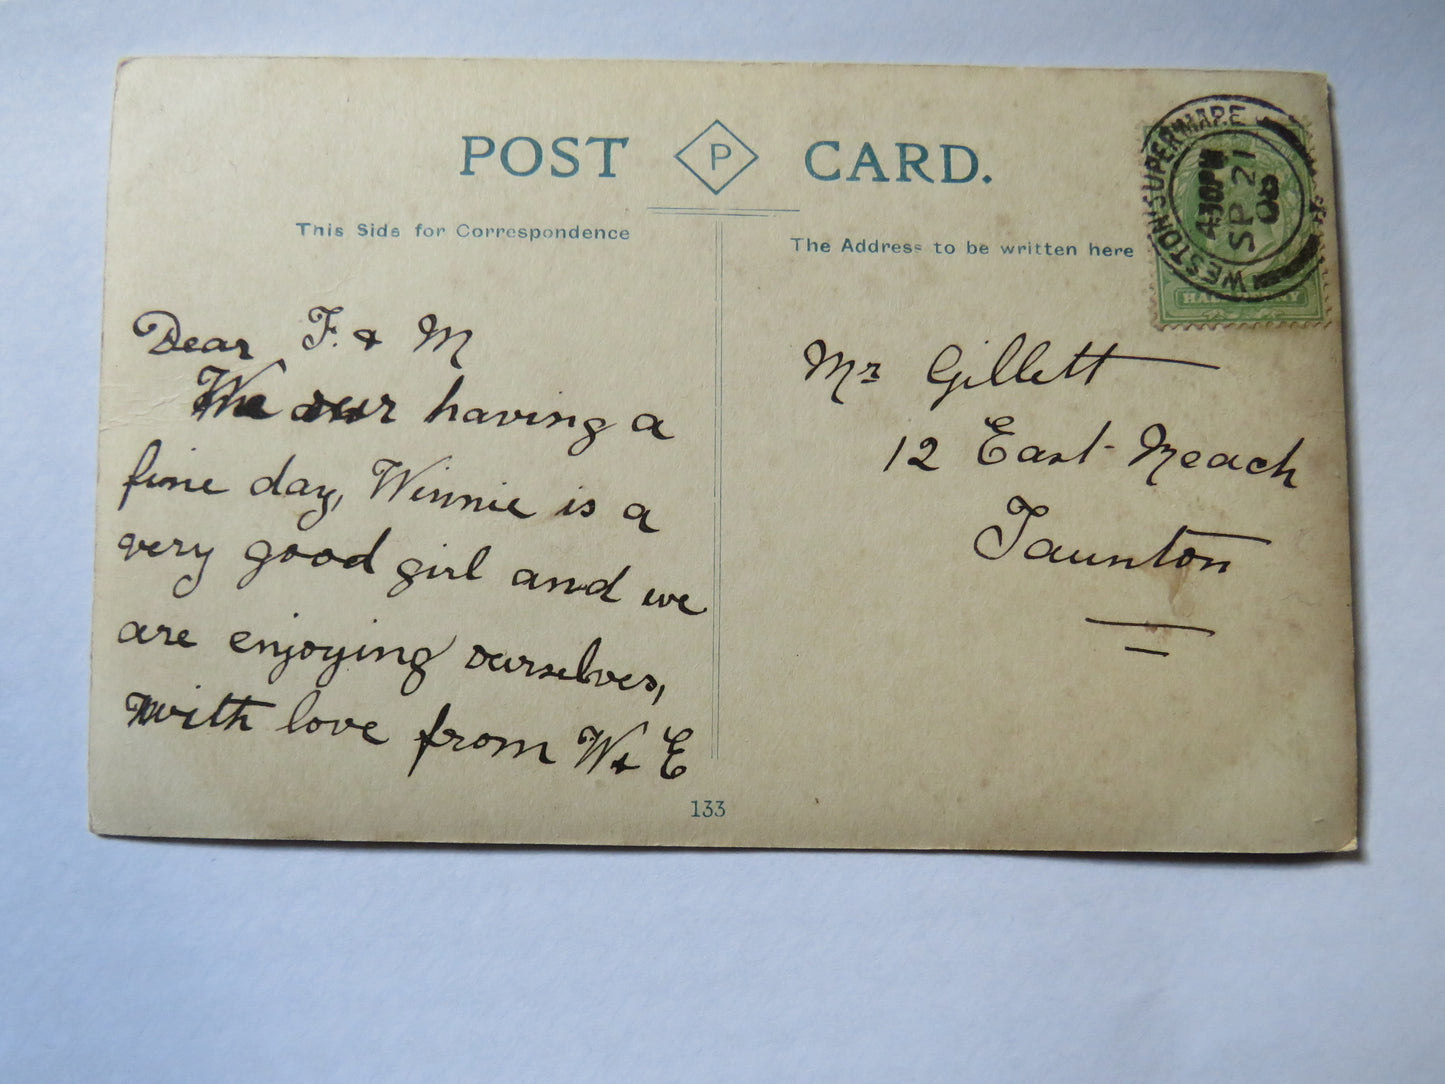 POST P CARD.
This Side for Correspondence
The Address to be written here
WESTON-SUPER-MARE
4 30 PM
SP 21
08
HALFPENNY
Dear F. & M
We are having a
fine day, Winnie is a
very good girl and we
are enjoying ourselves,
with love from W & E
Mr Gillett
12 East Reach
Taunton
133